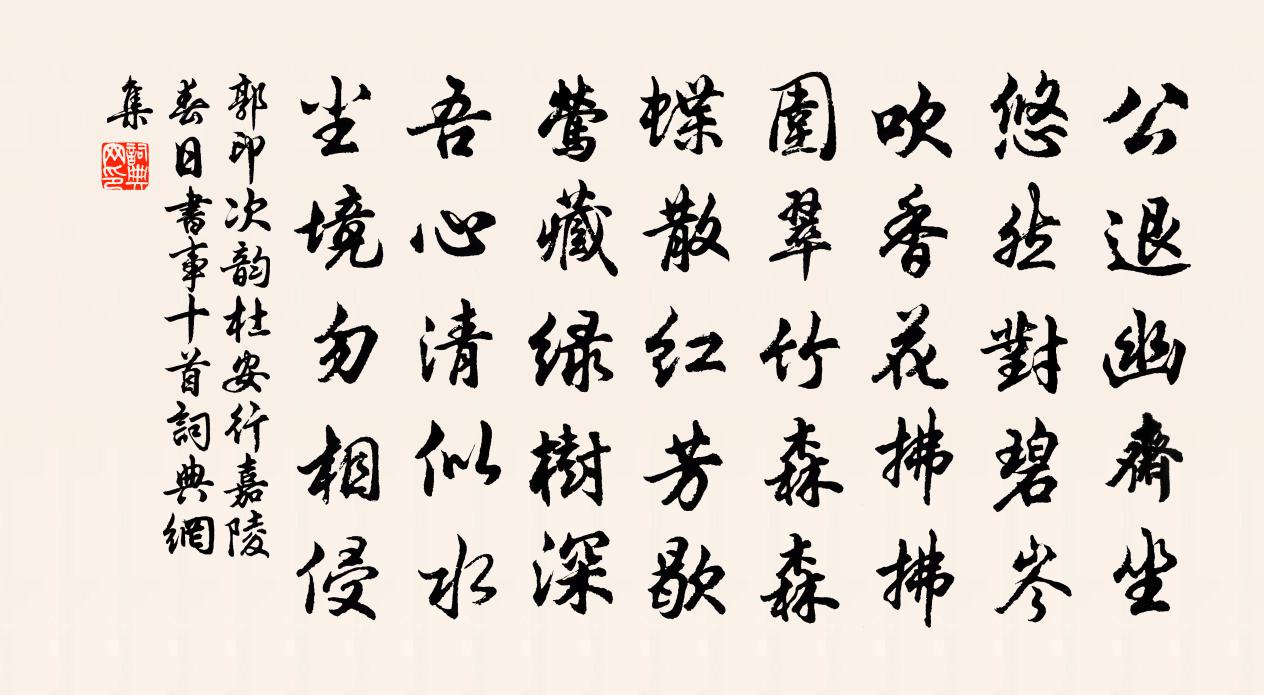 公退幽齋坐
悠然對碧岑
吹香花拂拂
圍翠竹森森
蝶散红芳歇
鶯藏緑樹深
吾心清似水
尘境勿相侵
郭印次韵杜安行嘉陵
春日書事十首詞典網
集
詞典網印